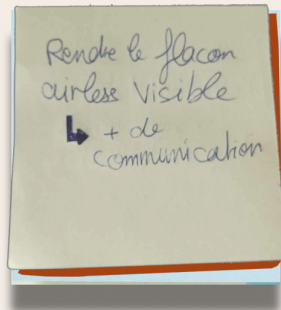 Rendre le flacon
airless visible
↳ + de
communication